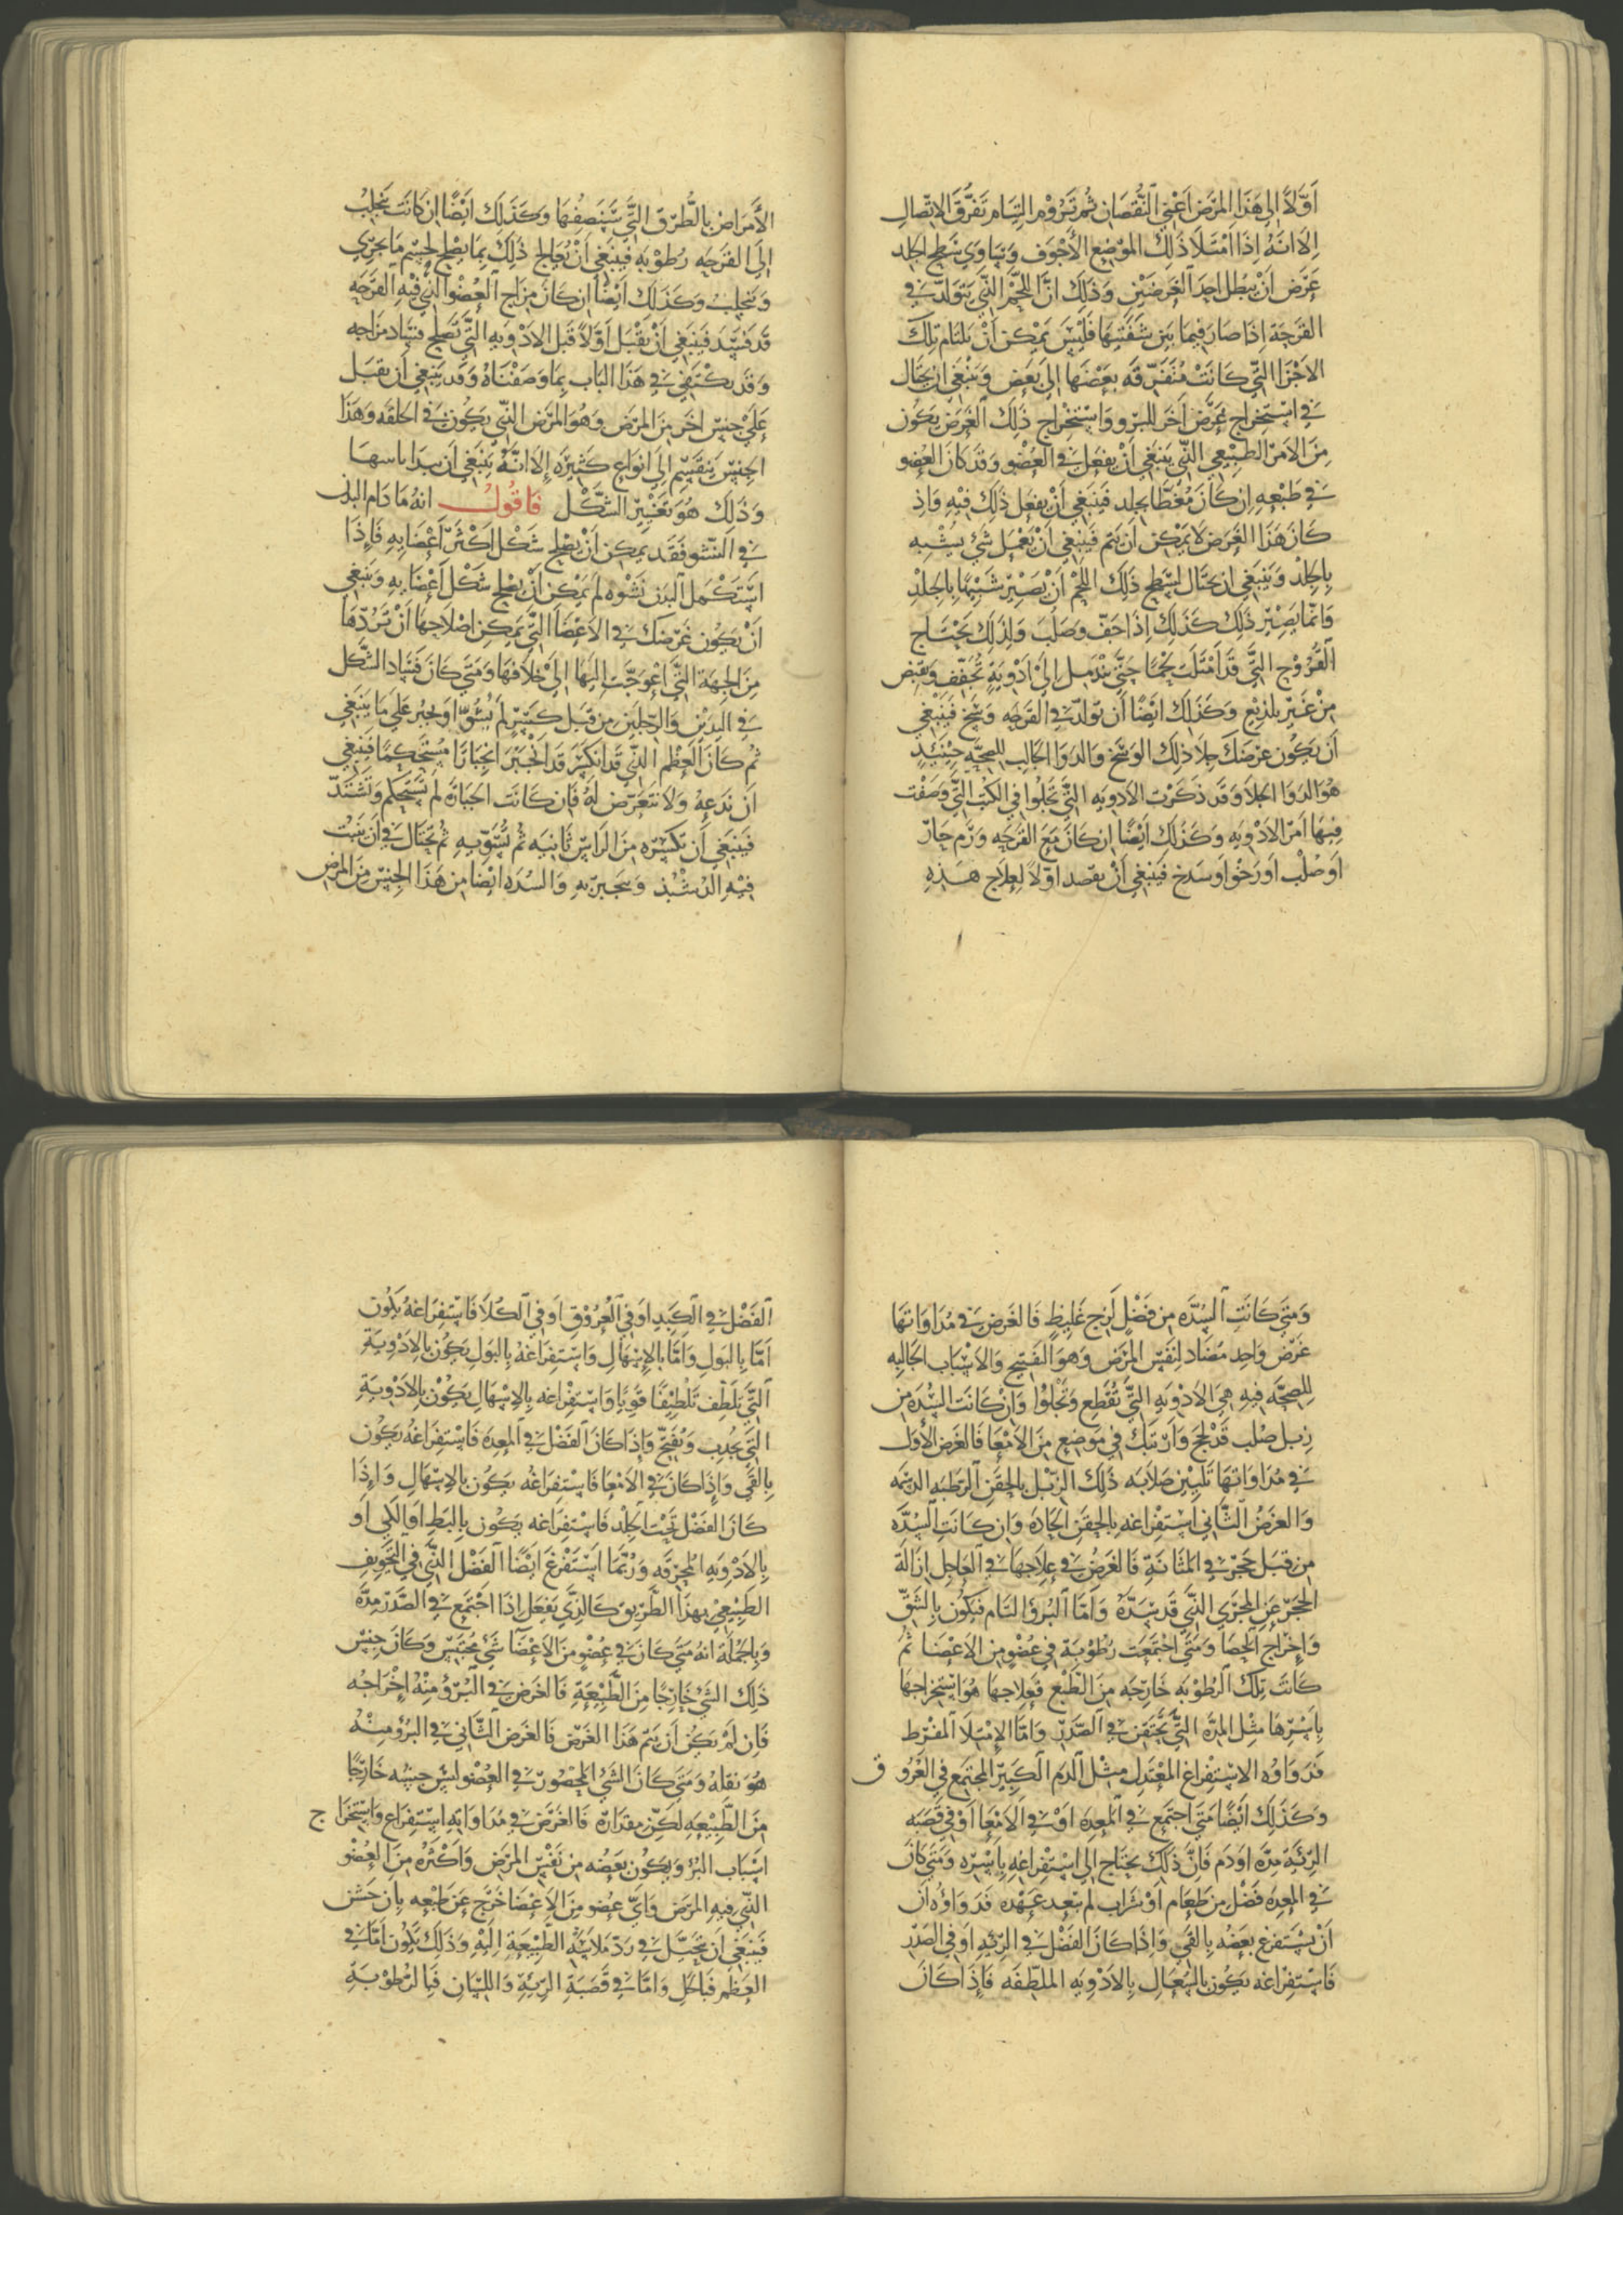 أولا إلى هذا المرض أعني النقصان ثم تروم التيام تفرق الاتصال
إلا أنه إذا امتلا ذلك الموضع الأجوف وتساوى سطح الجلد
عرض أن يبطل أحد الغرضين وذلك أن اللحم الذي يتولد في
القرحة إذا صار فيما بين شفتيها فليس يمكن أن يلتام تلك
الاجزا التي كانت متفرقه بعضها إلى بعض وينبغي ان يحتال
في استخراج غرض اخر للبرو واستخراج ذلك الغرض يكون
من الامر الطبيعي الذي ينبغي أن يفعل في العضو وقد كان العضو
في طبعه إن كان مغطا بجلد فينبغي أن يفعل ذلك فيه وإذ
كان هذا الغرض لا يمكن أن يتم فينبغي أن نعمل شي يشبه
بالجلد وينبغي ان يحتال لسطح ذلك اللحم أن يصير شبيها بالجلد
وانما يصير ذلك كذلك إذا جف وصلب ولذلك يحتاج
القروح التي قد امتلت لحما حتى تندمل إلى أدوية تجفف وتقبض
من غير تلذيع وكذلك ايضا أن تولد في القرحه وسخ فينبغي
أن يكون غرضك جلا ذلك الوسخ والدوا الجالب للصحة حينئذ
هو الدوا الجلا وقد ذكرت الادويه التي تجلوا في الكتب التي وصفت
فيها أمر الادويه وكذلك أيضا إن كان مع القرحه ورم حار
او صلب او رخوا وسدخ فينبغي أن يقصد اولا لعلاج هذه
الأمراض بالطرق التي سنصفها وكذلك ايضا ان كانت تنجلب
إلى القرحه رطوبه فينبغي أن نعالج ذلك بما يصلح لحسم ما يجري
وينجلب وكذلك أيضا ان كان مزاج العضو الذي فيه القرحه
قد فسد فينبغي أن يقبل أولا قبل الادويه التي تصلح فساد مزاجه
وقد يكتفي في هذا الباب بما وصفناه وقد ينبغي أن يقبل
على جنس اخر من المرض وهو المرض الذي يكون في الخلقه وهذا
الجنس ينقسم إلى انواع كثيره إلا أنه ينبغي أن يبدا باسها
وذلك هو تغيير الشكل فاقول انه ما دام البدن
في النشو فقد يمكن أن يصلح شكل أكثر أعضايه فإذا
استكمل البدن نشوه لم يمكن أن يصلح شكل أعضايه وينبغي
أن يكون غرضك في الاعضا التي يمكن اصلاحها أن تردها
من الجهة التي اعوجت اليها إلى خلافها ومتى كان فساد الشكل
في اليدين والرجلين من قبل كسر لم يسو او يجبر على ما ينبغي
ثم كان العظم الذي قد انكسر قد انجبر انجبارا مستحكما فينبغي
أن ندعه ولا نتعرض له فإن كانت الجباره لم تستحكم وتشتد
فينبغي أن تكسره من الراس ثانيه ثم تسويه ثم تحتال في أن ينبت
فيه الدشبد وتجبر به والسده ايضا من هذا الجنس من المرض
ومتى كانت السده من فضل لزج غليظ فالغرض في مداواتها
غرض واحد مضاد لنفس المرض وهو الفتح والاسباب الجالبه
للصحه فيه هي الادويه التي تقطع وتجلوا وان كانت السده من
زبل صلب قد لحج وارتبك في موضع من الامعا فالغرض الأول
في مداواتها تليين صلابه ذلك الزبل بالحقن الرطبه الدسمه
والغرض الثاني استفراغه بالحقن الحاده وان كانت السده
من قبل حجر في المثانة فالغرض في علاجها في العاجل ازالة
الحجر عن المجرى الذي قد سده وأما البرؤ التام فيكون بالشق
وإخراج الحصا ومتى اجتمعت رطوبة في عضو من الاعضا ثم
كانت تلك الرطوبه خارجه من الطبع فعلاجها هو استخراجها
بأسرها مثل المدة التي تحتقن في الصدر وأما الإمتلا المفرط
فدواوه الاستفراغ المعتدل مثل الدم الكبير المجتمع في العروق
وكذلك ايضا متى اجتمع في المعده او في الامعا او في قصبه
الرئة مدة اودم فإن ذلك يحتاج إلى استفراغه بأسره ومتى كان
في المعده فضل من طعام او شراب لم يبعد عهده فدواؤه أن
أن يستفرغ بعضه بالقي وإذا كان الفضل في الرئه اوفي الصدر
فاستفراغه يكون بالسعال بالادويه الملطفه فإذا كان
الفضل في الكبد او في العروق او في الكلا فاستفراغه يكون
اما بالبول وأما بالإسهال واستفراغه بالبول يكون بالادوية
التي تلطف تلطيفا قويا واستفراغه بالإسهال يكون بالادوية
التي تجذب وتفتح وإذا كان الفضل في المعدة فاستفراغه يكون
بالقي وإذا كان في الامعا فاستفراغه يكون بالاسهال وإذا
كان الفضل تحت الجلد فاستفراغه يكون بالبط او الكي او
بالادويه المحرقه وربما استفرغ ايضا الفضل الذي في التجويف
الطبيعي بهذا الطريق كالذي يفعل إذا اجتمع في الصدر مدة
وبالجملة انه متى كان في عضو من الاعضا شي محتبس وكان جنس
ذلك الشي خارجا من الطبيعة فالغرض في البرؤ منه إخراجه
فإن لم يكن أن يتم هذا الغرض فالغرض الثاني في البرؤ منه
هو نقله ومتى كان الشي المحصور في العضو ليس جنسه خارجا
من الطبيعه لكن مقداره فالغرض في مداواته استفراغ واستخراج
اسباب البرؤ ويكون بعضه من نفس المرض وأكثره من العضو
الذي فيه المرض واي عضو من الاعضا خرج عن طبعه بان خشن
فينبغي ان يحتال في رد ملاسته الطبيعة اليه وذلك يكون أما في
العظم فبالحك واما في قصبة الرئة واللسان فبالرطوبة